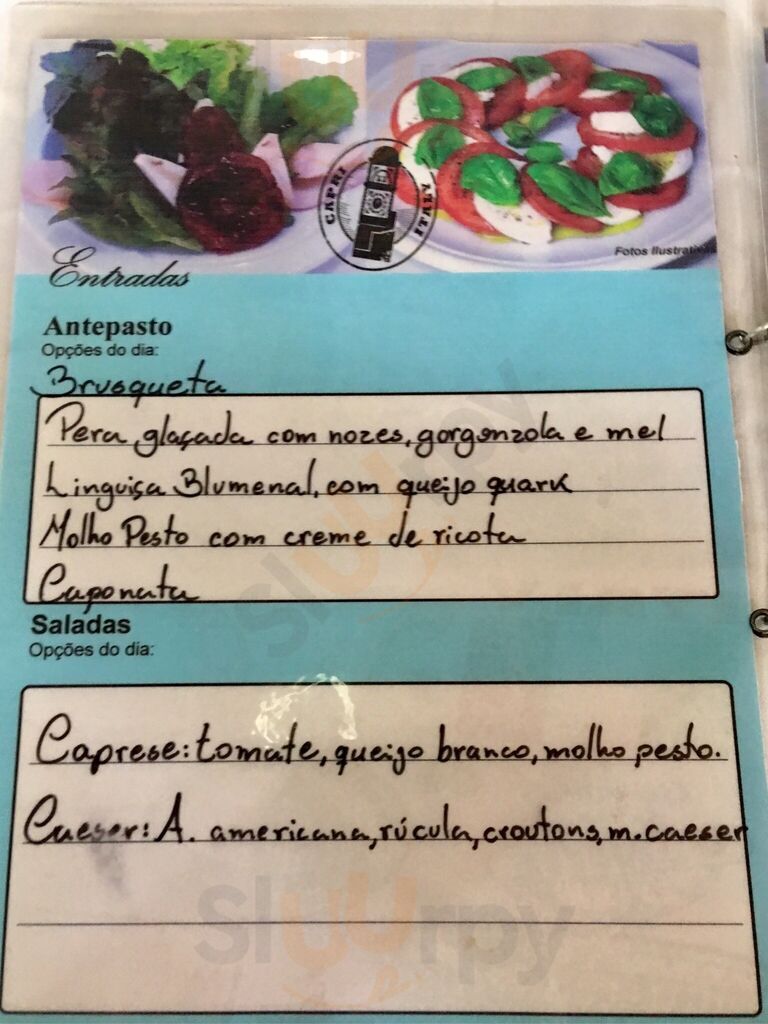 CAPRI ITALY
Fotos Ilustrativas
Entradas
Antepasto
Opções do dia:
Brusqueta
Pera glaçada com nozes, gorgonzola e mel
Linguisa Blumenal, com queijo quark
Molho Pesto com creme de ricota
Caponata
Saladas
Opções do dia:
Caprese: tomate, queijo branco, molho pesto.
Caeser: A. americana, rúcula, croutons, m. caeser
sluurpy
sluurpy